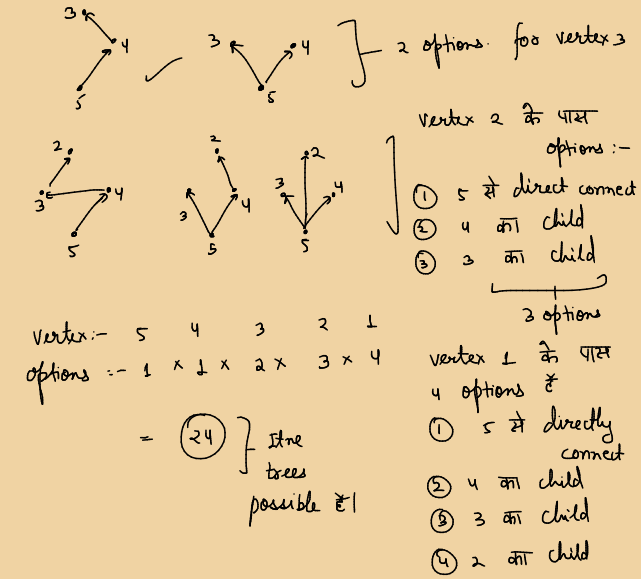 3
4
5
3
4
5
2 options. for vertex 3
vertex 2 के पास
options :-
① 5 से direct connect
② 4 का child
③ 3 का child
3 options
2
3
4
5
2
3
4
5
2
3
4
5
vertex:- 5 4 3 2 1
options :- 1 x 1 x 2 x 3 x 4
= 24
Itne
trees
possible हैं।
vertex 1 के पास
4 options हैं
① 5 से directly
connect
② 4 का child
③ 3 का child
④ 2 का child